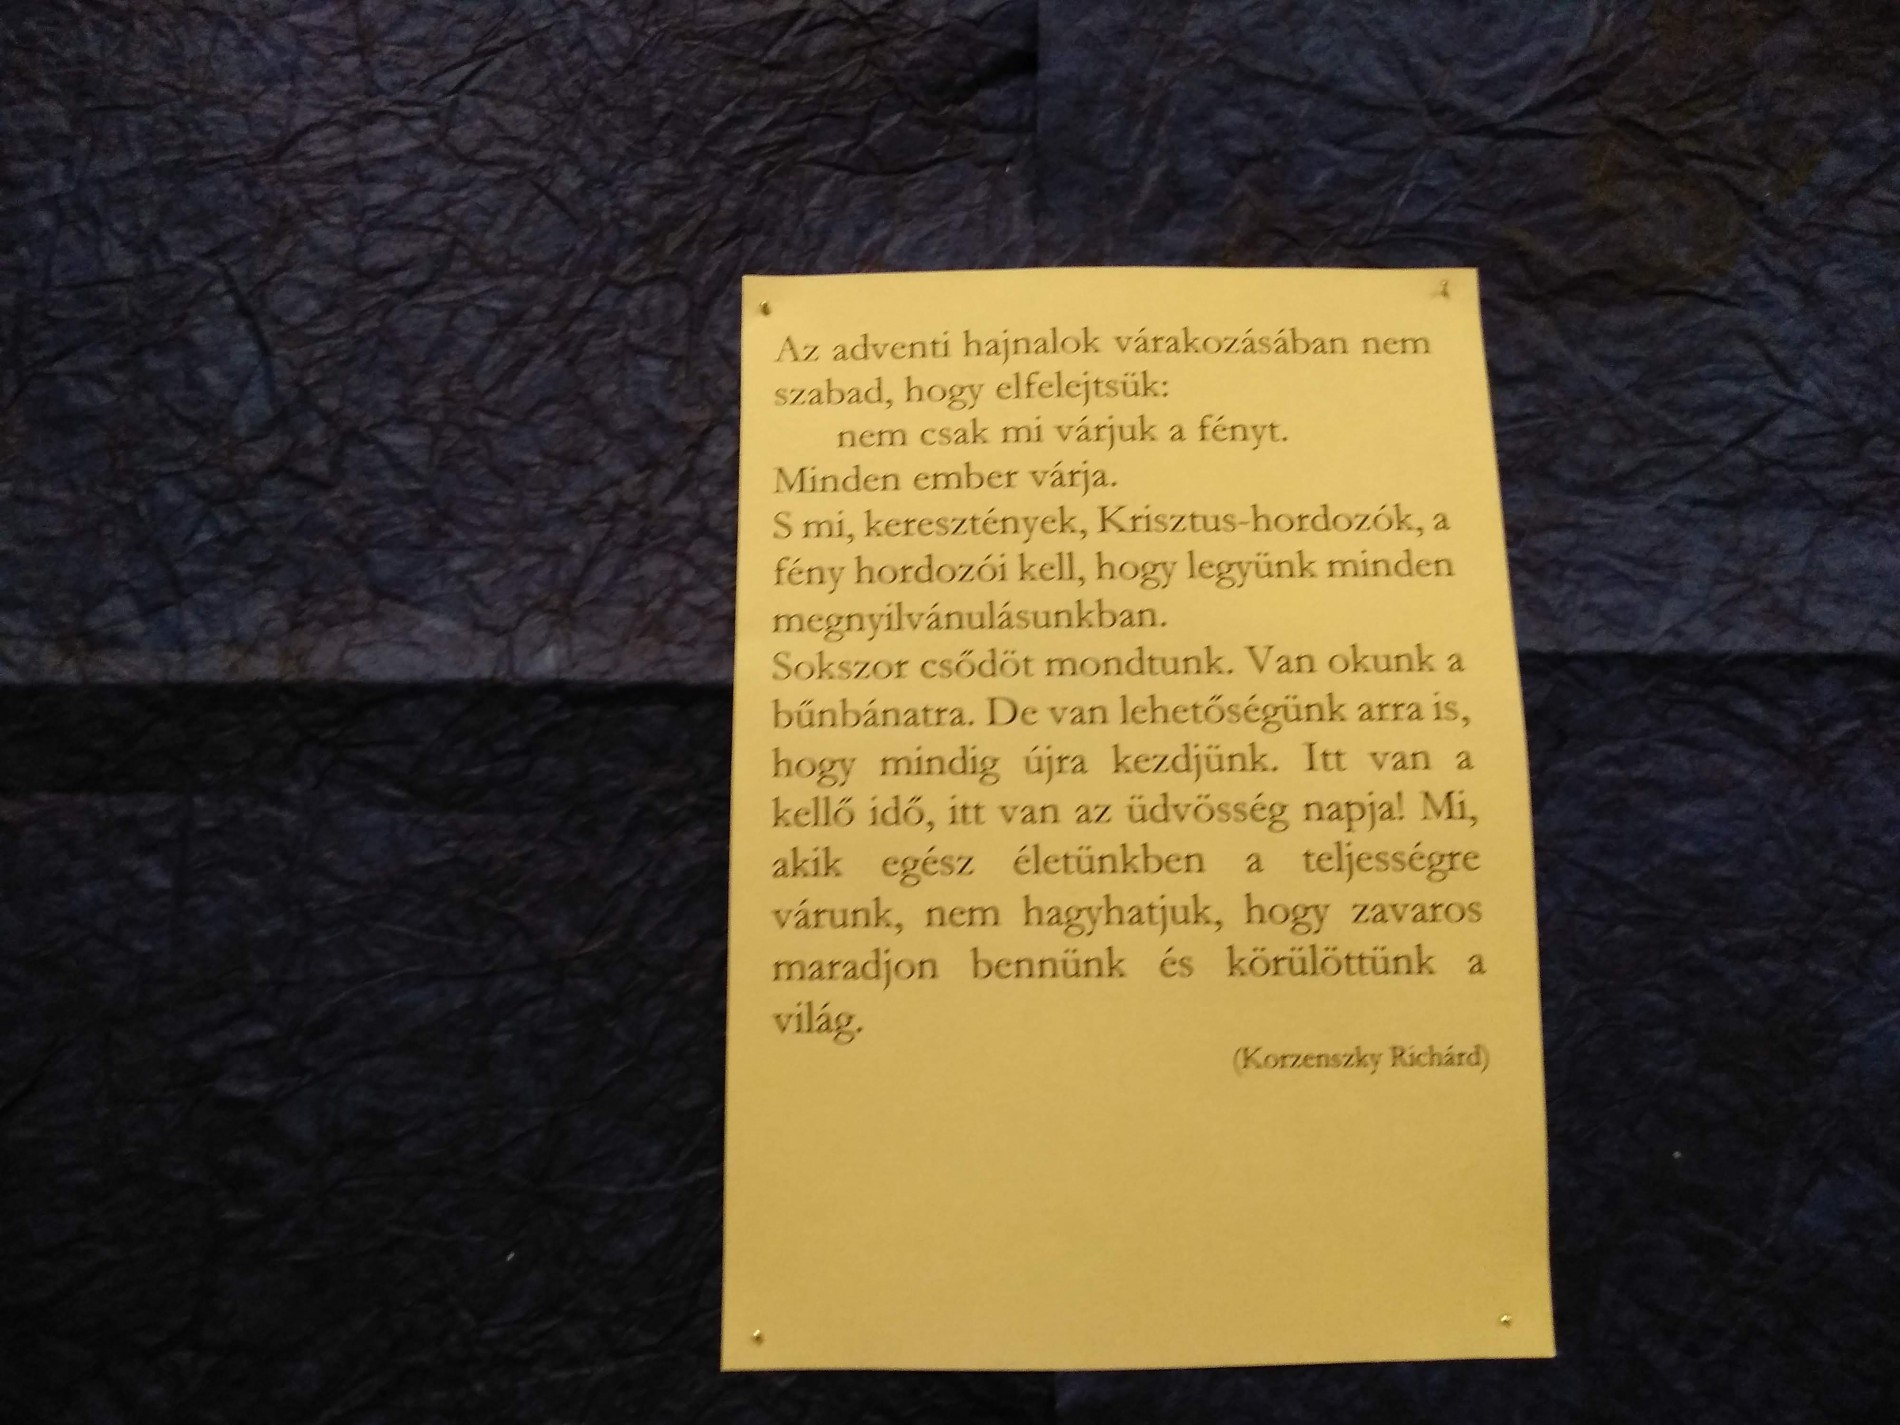 Az adventi hajnalok várakozásában nem
szabad, hogy elfelejtsük:
nem csak mi várjuk a fényt.
Minden ember várja.
S mi, keresztények, Krisztus-hordozók, a
fény hordozói kell, hogy legyünk minden
megnyilvánulásunkban.
Sokszor csődöt mondtunk. Van okunk a
bűnbánatra. De van lehetőségünk arra is,
hogy mindig újra kezdjünk. Itt van a
kellő idő, itt van az üdvösség napja! Mi,
akik egész életünkben a teljességre
várunk, nem hagyhatjuk, hogy zavaros
maradjon bennünk és körülöttünk a
világ.
(Korzenszky Richárd)